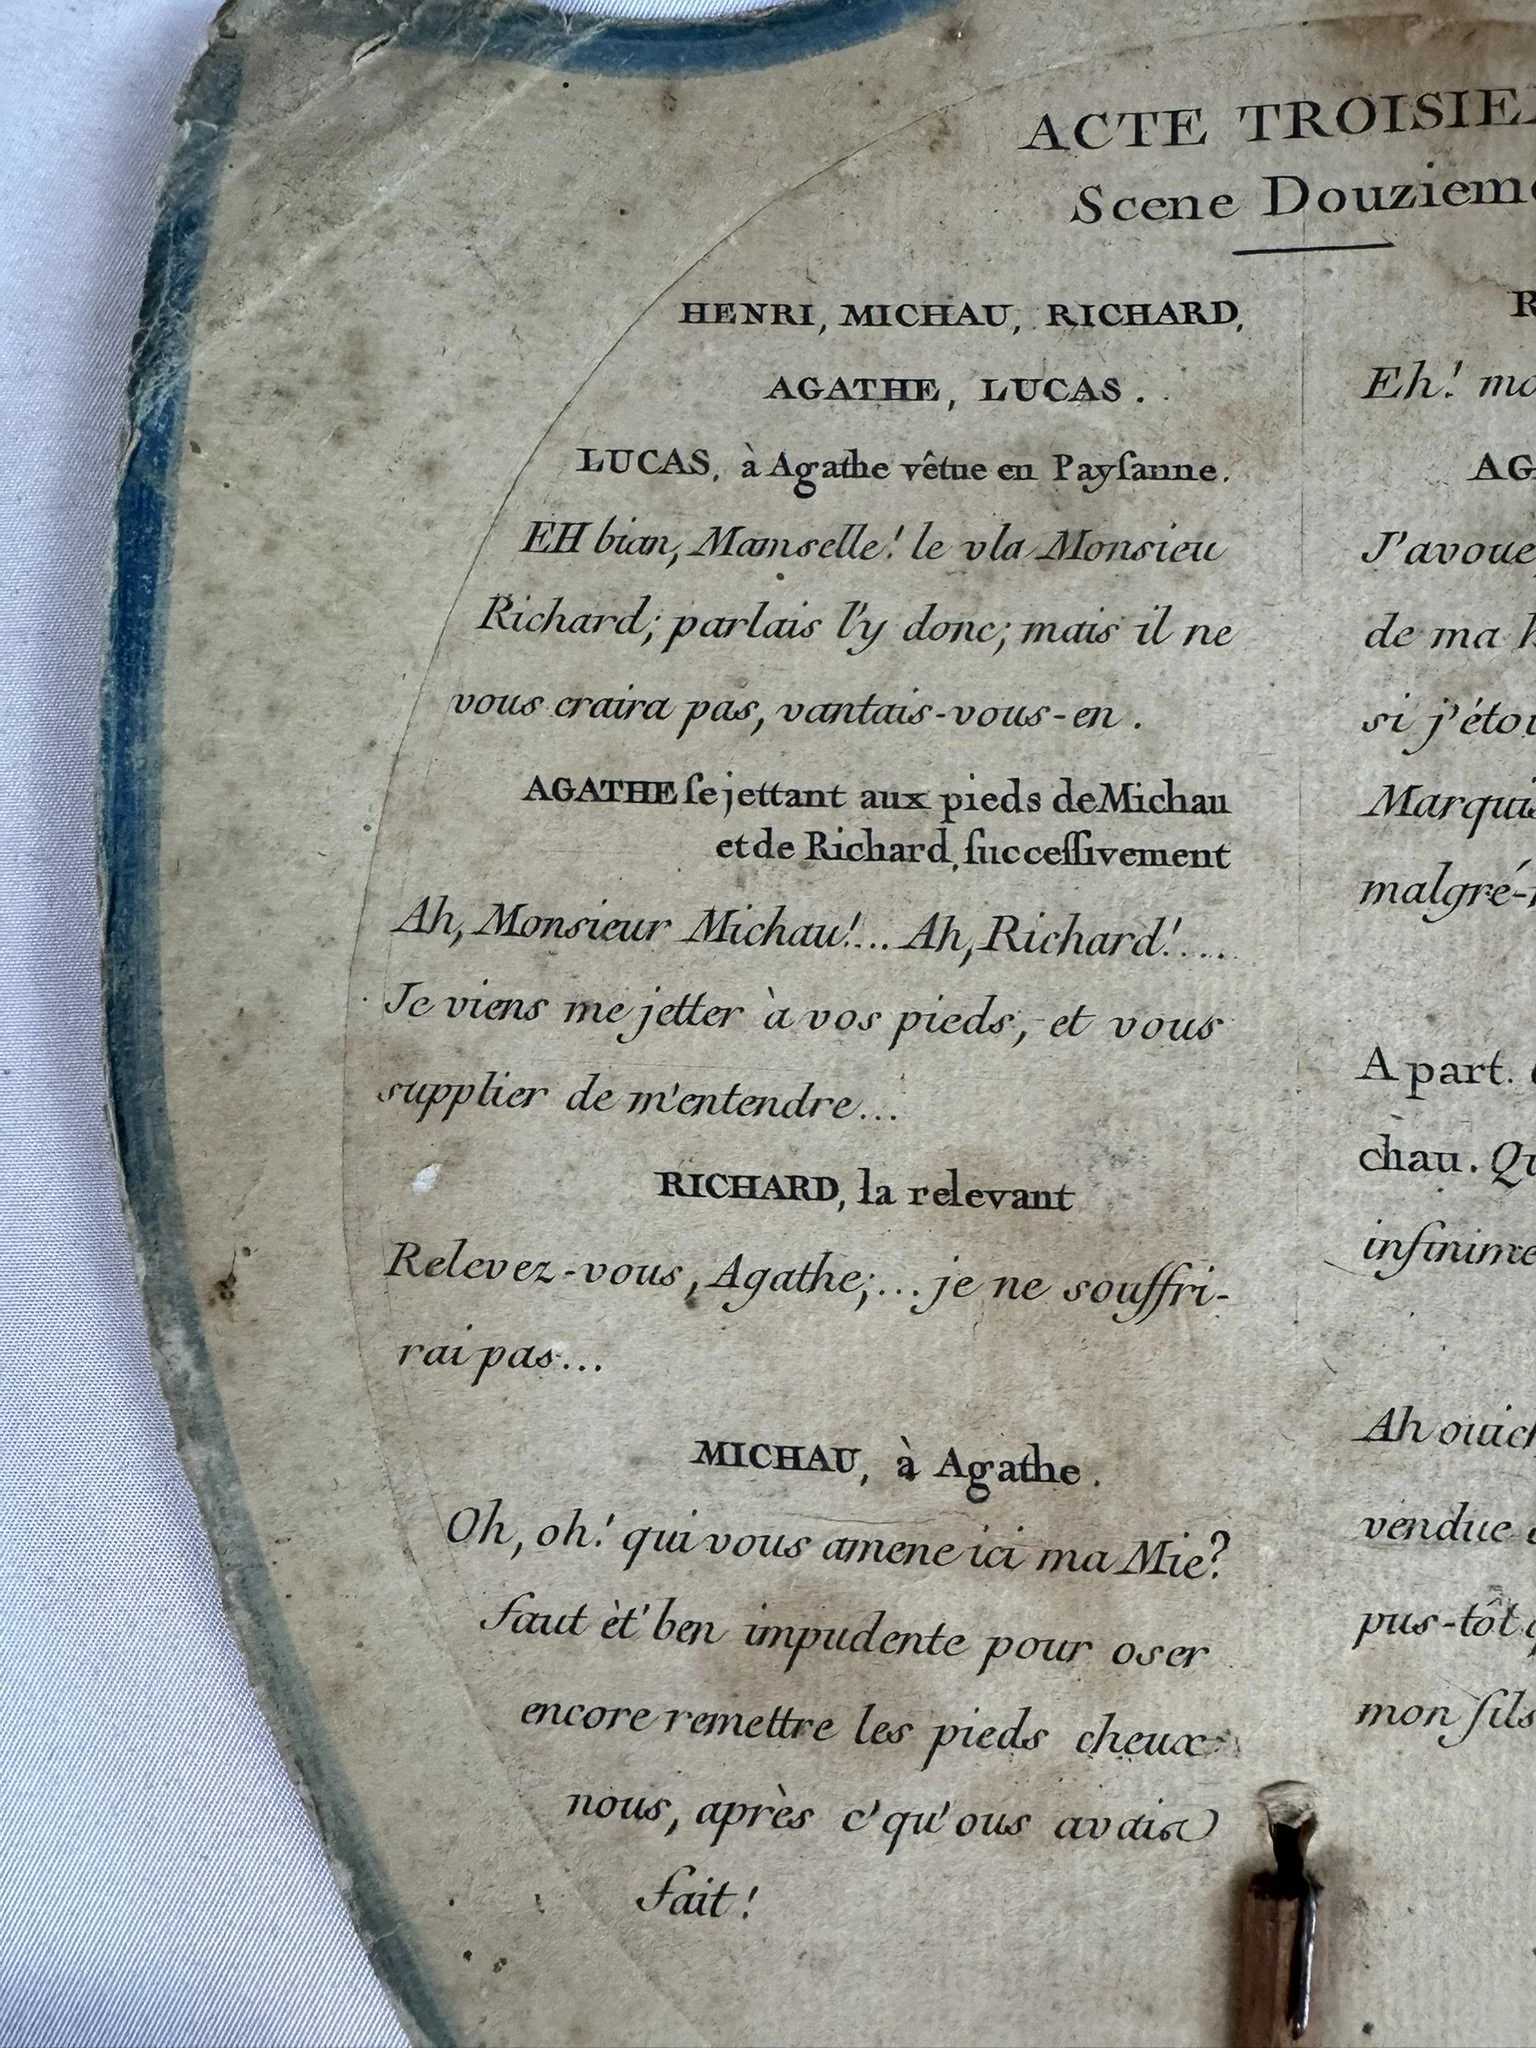 ACTE TROISIE
Scene Douzieme
HENRI, MICHAU, RICHARD,
AGATHE, LUCAS.
LUCAS, à Agathe vêtue en Payſanne.
EH bian, Mamselle! le vla Monsieu
Richard; parlais l'y donc; mais il ne
vous craira pas, vantais-vous-en.
AGATHE ſe jettant aux pieds de Michau
et de Richard ſucceſſivement
Ah, Monsieur Michau!... Ah, Richard!....
Je viens me jetter à vos pieds, et vous
supplier de m'entendre...
RICHARD, la relevant
Relevez-vous, Agathe;... je ne souffri-
rai pas...
MICHAU, à Agathe.
Oh, oh! qui vous amene ici ma Mie?
faut èt' ben impudente pour oser
encore remettre les pieds cheux
nous, après c'qu'ous avais
fait!
R
Eh!
AG
J'avoue
de ma
si
Marquis
malgré-
A part.
chau.
Ah
vendue
pus-tôt
mon fils